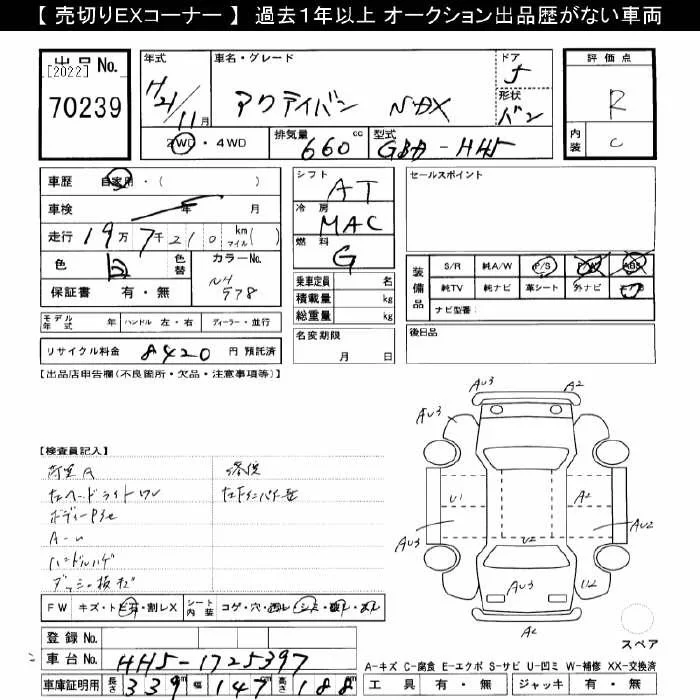 【 売切りEXコーナー 】 過去1年以上 オークション出品歴がない車両
出品 No.
[2022]
70239
年式
H21/11月
車名・グレード
アクティバン SDX
ドア
5
形状
バン
2WD・4WD
排気量 660 cc
型式 GBD-HH5
評価点
R
内装
C
車歴 自家用・( )
車検 年 月
走行 19万7千210 km マイル( )
色 白 色替
カラーNo. NH578
保証書 有・無
モデル年式 年 ハンドル 左・右 ディーラー・並行
リサイクル料金 8420 円 預託済
シフト
AT
冷房
MAC
燃料
G
乗車定員 名
積載量 kg
総重量 kg
名変期限
月 日
セールスポイント
装備品
S/R 純A/W P/S P/W ABS
純TV 純ナビ 革シート 外ナビ
ナビ型番:
後日品
【出品店申告欄(不良箇所・欠品・注意事項等)】
【検査員記入】
荷室R
左ヘッドライトワレ
A-u
ハンドルハゲ
修復
FW キズ・トビ石・割レX シート内装 コゲ・穴・
登録 No.
車台 No. HH5-1725397
車庫証明用 長さ 339 幅 147 高さ 188
AU3
A2
AU3
U1
A2
AU3
AU2
U2
AU3
U2
A2
スペア
A-キズ C-腐食 E-エクボ S-サビ U-凹ミ W-補修 XX-交換済
工具 有・無 ジャッキ 有・無